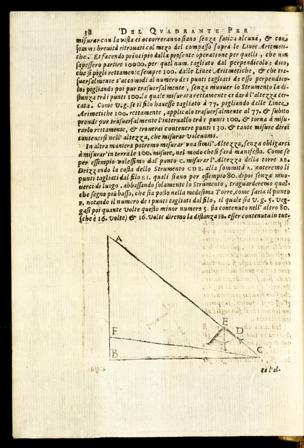 38 DEL QUADRANTE PER
misurar con la vista ci occorreranno siano senza fatica alcuna, & con
somma brevità ritrovati col mezo del compasso sopra le Linee Aritmeti-
che. Et facendo principio dalla presente operatione per quelli, che non
sapessero partire 10000. per qual num. tagliato dal perpendicolo; dico,
che si pigli rettamente sempre 100. dalle Linee Aritmetiche, & che tra-
sversalmente s'accomodi al numero de i punti tagliati da esso perpendico-
lo: pigliando poi pur trasversalmente, senza muover lo Strumento la di-
stanza tra i punti 100. la quale misurata rettamente ci darà l'altezza cer-
cata. Come V.g. se il filo havesse tagliato à 77. pigliando dalle Linee
Aritmetiche 100. rettamente, applicalo trasversalmente al 77. & subito
prendi pur trasversalmente l'intervallo trà i punti 100. & torna à misu-
rarlo rettamente, & troverai contenere punti 130. & tante misure dirai
contenersi nell'altezza, che misurar volevamo.
In altra maniera potremo misurar una simil'Altezza, senza obligarci
à misurar in terra le 100. misure, nel modo che si farà manifesto. Come se
per essempio volessimo dal punto C. misurar l'Altezza della torre AB.
Drizzando la costa dello Strumento CDE. alla sommità A. noteremo li
punti tagliati dal filo E I. quali siano per essempio 80. dipoi senza muo-
verci di luogo, abbassando solamente lo Strumento, traguarderemo qual-
che segno più basso, che sia posto nella medesima Torre, come saria il punto
F. notando il numero de i punti tagliati dal filo, il quale sia V. g. 5. Veg-
gasi poi quante volte questo minor numero 5. sia contenuto nell'altro 80.
(che è 16. volte) & 16. volte diremo la distanza FB. esser contenuta in tut-
A
E
D
F
B
C
ta l'al-